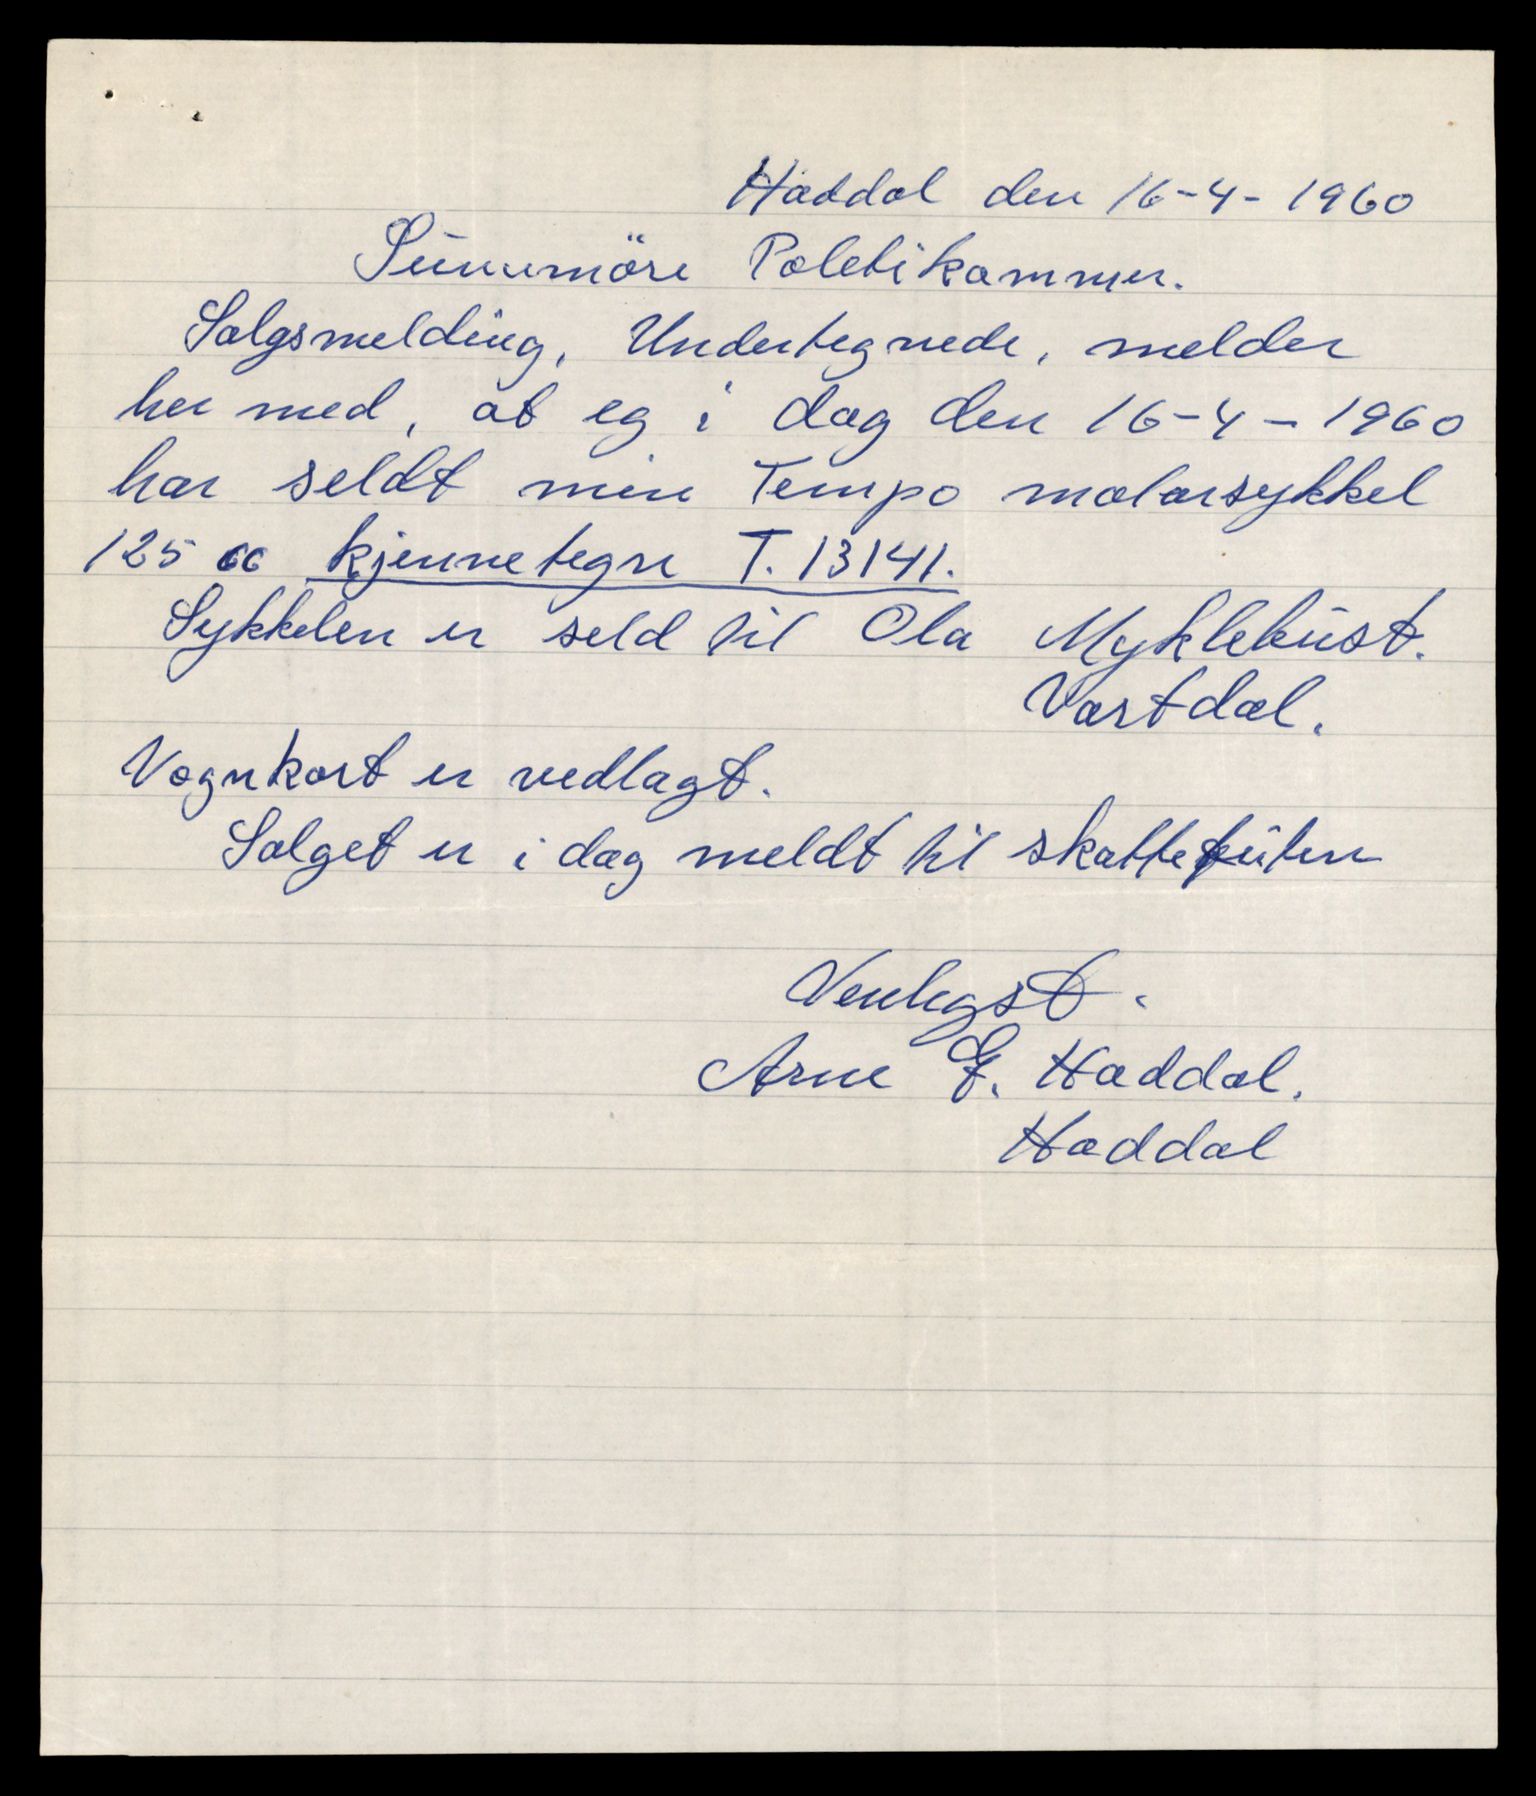 Haddal den 16-4-1960
Sunnmöre Politikammer.
Salgsmelding, Undertegnede, melder
her med, at eg i dag den 16-4-1960
har seldt min Tempo motorsykkel
125 cc kjennetegn T. 13141.
Sykkelen er seld til Ola Myklebust.
Vartdal.
Vognkort er vedlagt.
Salget er i dag meldt til skattefuten
Venlegst.
Arne E. Haddal.
Haddal